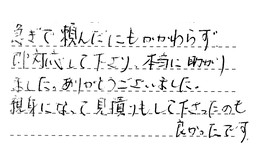 急ぎで頼んだにもかかわらず
即対応して下さり、本当に助かり
ました。ありがとうございました。
親身になって見積りもして下さったのも
良かったです